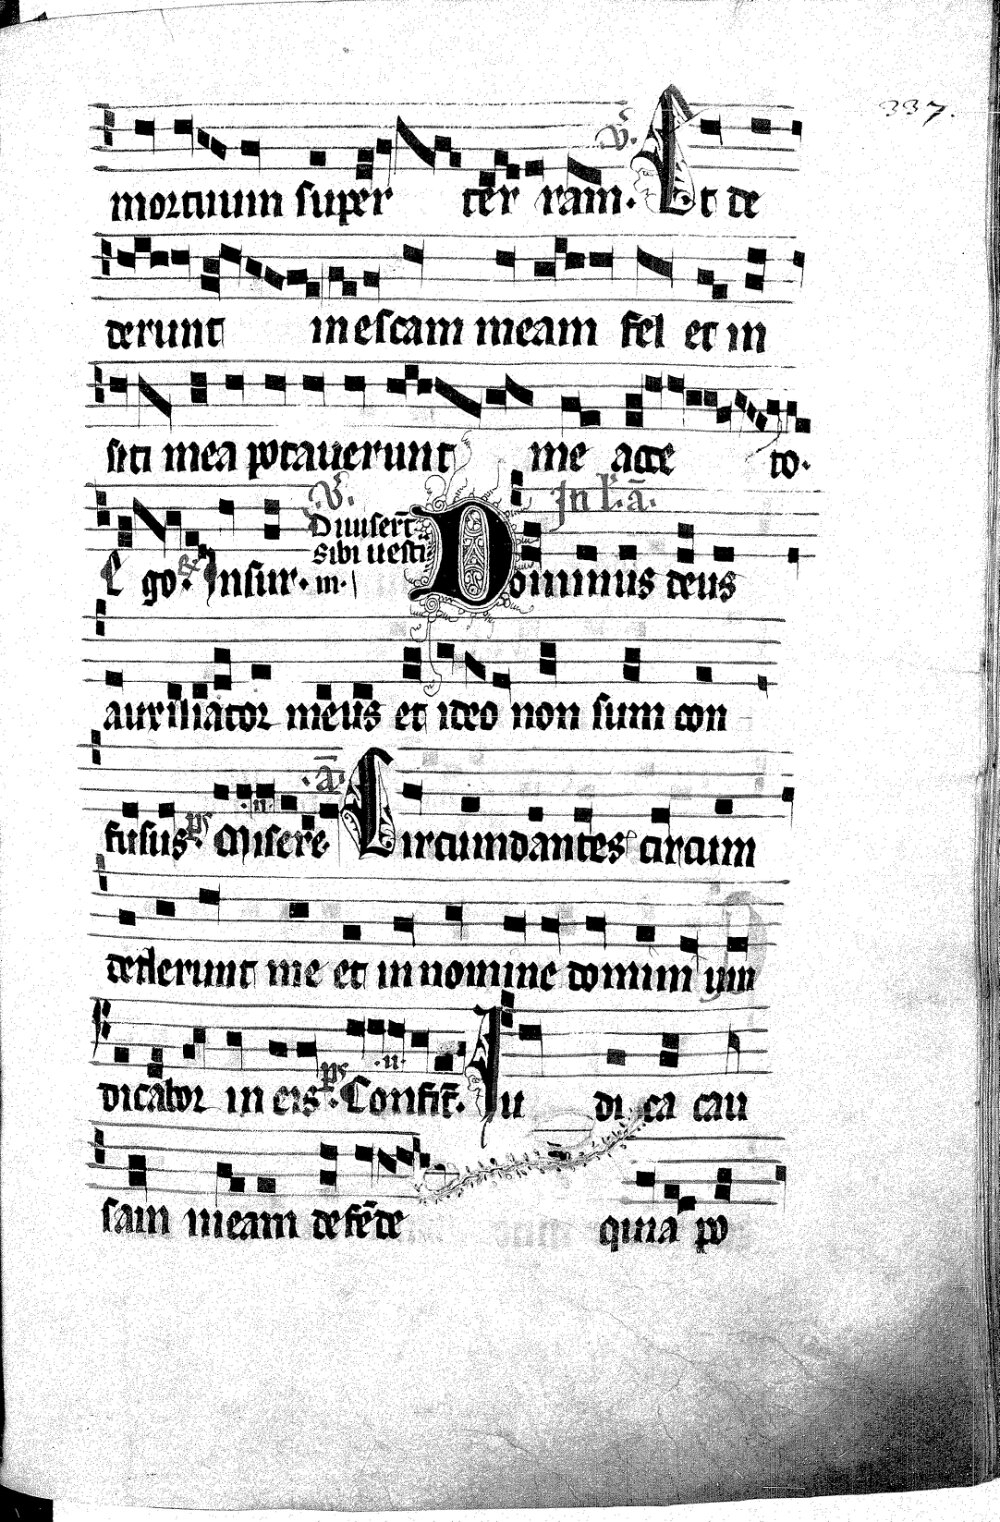 337.
mortuum super ter ram. V. Et de
derunt in escam meam fel et in
siti mea potaverunt me ace to.
V. Divisert̄ In l. ā.
sibi vesti
E go. Insur. m. Dominus deus
auxiliator meus et ideo non sum con
fusus. ps Misere. ā. Circumdantes circum
dederunt me et in nomine domini vin
dicabor in eis. ps Confit̄. Iu di ca cau
sam meam defēde quia po